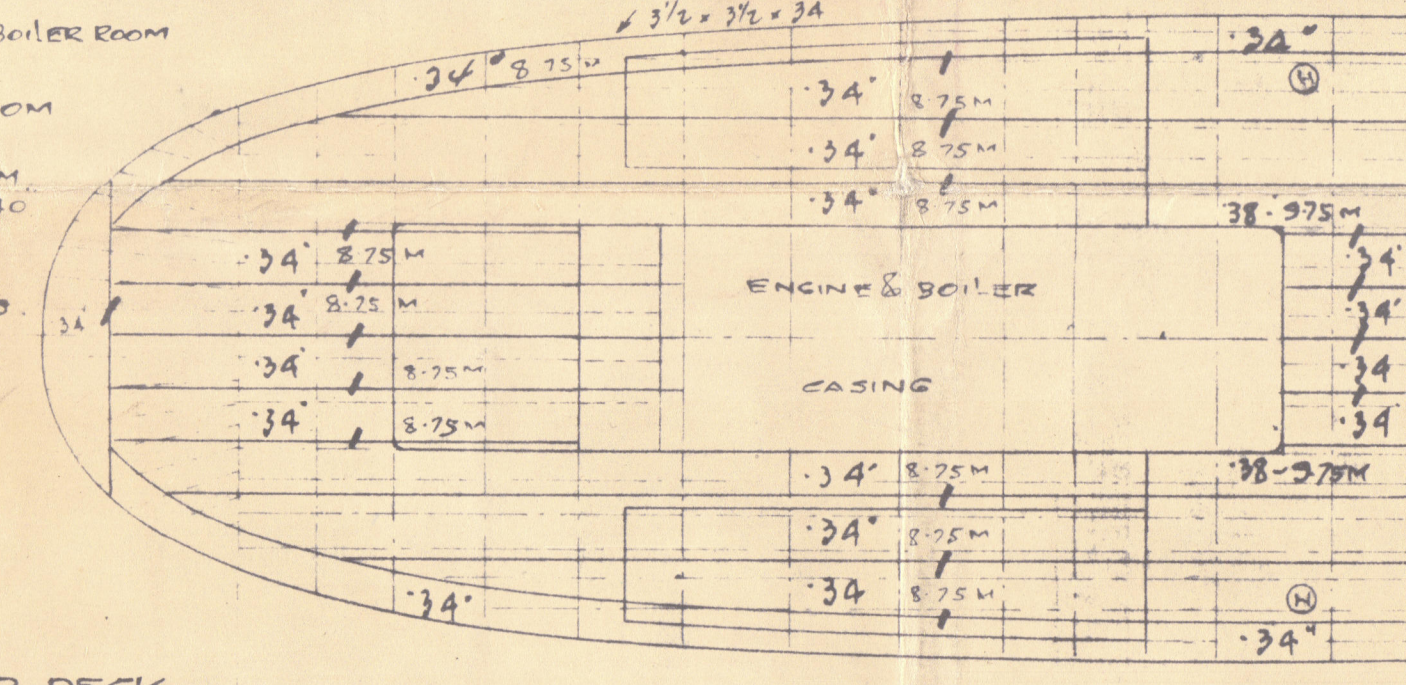 BOILER ROOM
OM
M
40
3½ × 3½ × 34
.34" 8.75 M
.34" 8.75 M
.34" 8.75 M
.34" 8.75 M
.34"
H
38 - 9.75 M
.34" 8.75 M
.34" 8.75 M
.34" 8.75 M
.34" 8.75 M
34
ENGINE & BOILER
CASING
.34"
.34"
.34
.34
.34" 8.75 M
.34" 8.75 M
.34 8.75 M
.38 - 9.75 M
N
.34"
.34"
DECK